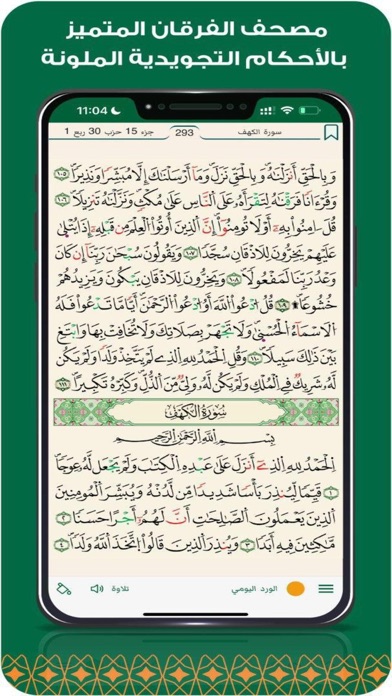 مصحف الفرقان المتميز
بالأحكام التجويدية الملونة
11:04
سورة الكهف
293
جزء 15 حزب 30 ربع 1
وَبِالْحَقِّ أَنزَلْنَاهُ وَبِالْحَقِّ نَزَلَ وَمَا أَرْسَلْنَاكَ إِلَّا مُبَشِّرًا وَنَذِيرًا ١٠٥
وَقُرْءَانًا فَرَقْنَاهُ لِتَقْرَأَهُ عَلَى النَّاسِ عَلَىٰ مُكْثٍ وَنَزَّلْنَاهُ تَنزِيلًا ١٠٦
قُلْ ءَامِنُوا بِهِ أَوْ لَا تُؤْمِنُوا إِنَّ الَّذِينَ أُوتُوا الْعِلْمَ مِن قَبْلِهِ إِذَا يُتْلَىٰ
عَلَيْهِمْ يَخِرُّونَ لِلْأَذْقَانِ سُجَّدًا ١٠٧ وَيَقُولُونَ سُبْحَانَ رَبِّنَا إِن كَانَ
وَعْدُ رَبِّنَا لَمَفْعُولًا ١٠٨ وَيَخِرُّونَ لِلْأَذْقَانِ يَبْكُونَ وَيَزِيدُهُمْ
خُشُوعًا ۩ ١٠٩ قُلِ ادْعُوا اللَّهَ أَوِ ادْعُوا الرَّحْمَٰنَ أَيًّا مَّا تَدْعُوا فَلَهُ
الْأَسْمَاءُ الْحُسْنَىٰ وَلَا تَجْهَرْ بِصَلَاتِكَ وَلَا تُخَافِتْ بِهَا وَابْتَغِ
بَيْنَ ذَٰلِكَ سَبِيلًا ١١٠ وَقُلِ الْحَمْدُ لِلَّهِ الَّذِي لَمْ يَتَّخِذْ وَلَدًا وَلَمْ يَكُن
لَّهُ شَرِيكٌ فِي الْمُلْكِ وَلَمْ يَكُن لَّهُ وَلِيٌّ مِّنَ الذُّلِّ وَكَبِّرْهُ تَكْبِيرًا ١١١
سُورَةُ الْكَهْفِ
بِسْمِ اللَّهِ الرَّحْمَٰنِ الرَّحِيمِ
الْحَمْدُ لِلَّهِ الَّذِي أَنزَلَ عَلَىٰ عَبْدِهِ الْكِتَابَ وَلَمْ يَجْعَل لَّهُ عِوَجًا
١ قَيِّمًا لِّيُنذِرَ بَأْسًا شَدِيدًا مِّن لَّدُنْهُ وَيُبَشِّرَ الْمُؤْمِنِينَ
الَّذِينَ يَعْمَلُونَ الصَّالِحَاتِ أَنَّ لَهُمْ أَجْرًا حَسَنًا ٢
مَّاكِثِينَ فِيهِ أَبَدًا ٣ وَيُنذِرَ الَّذِينَ قَالُوا اتَّخَذَ اللَّهُ وَلَدًا ٤
الورد اليومي
تلاوة